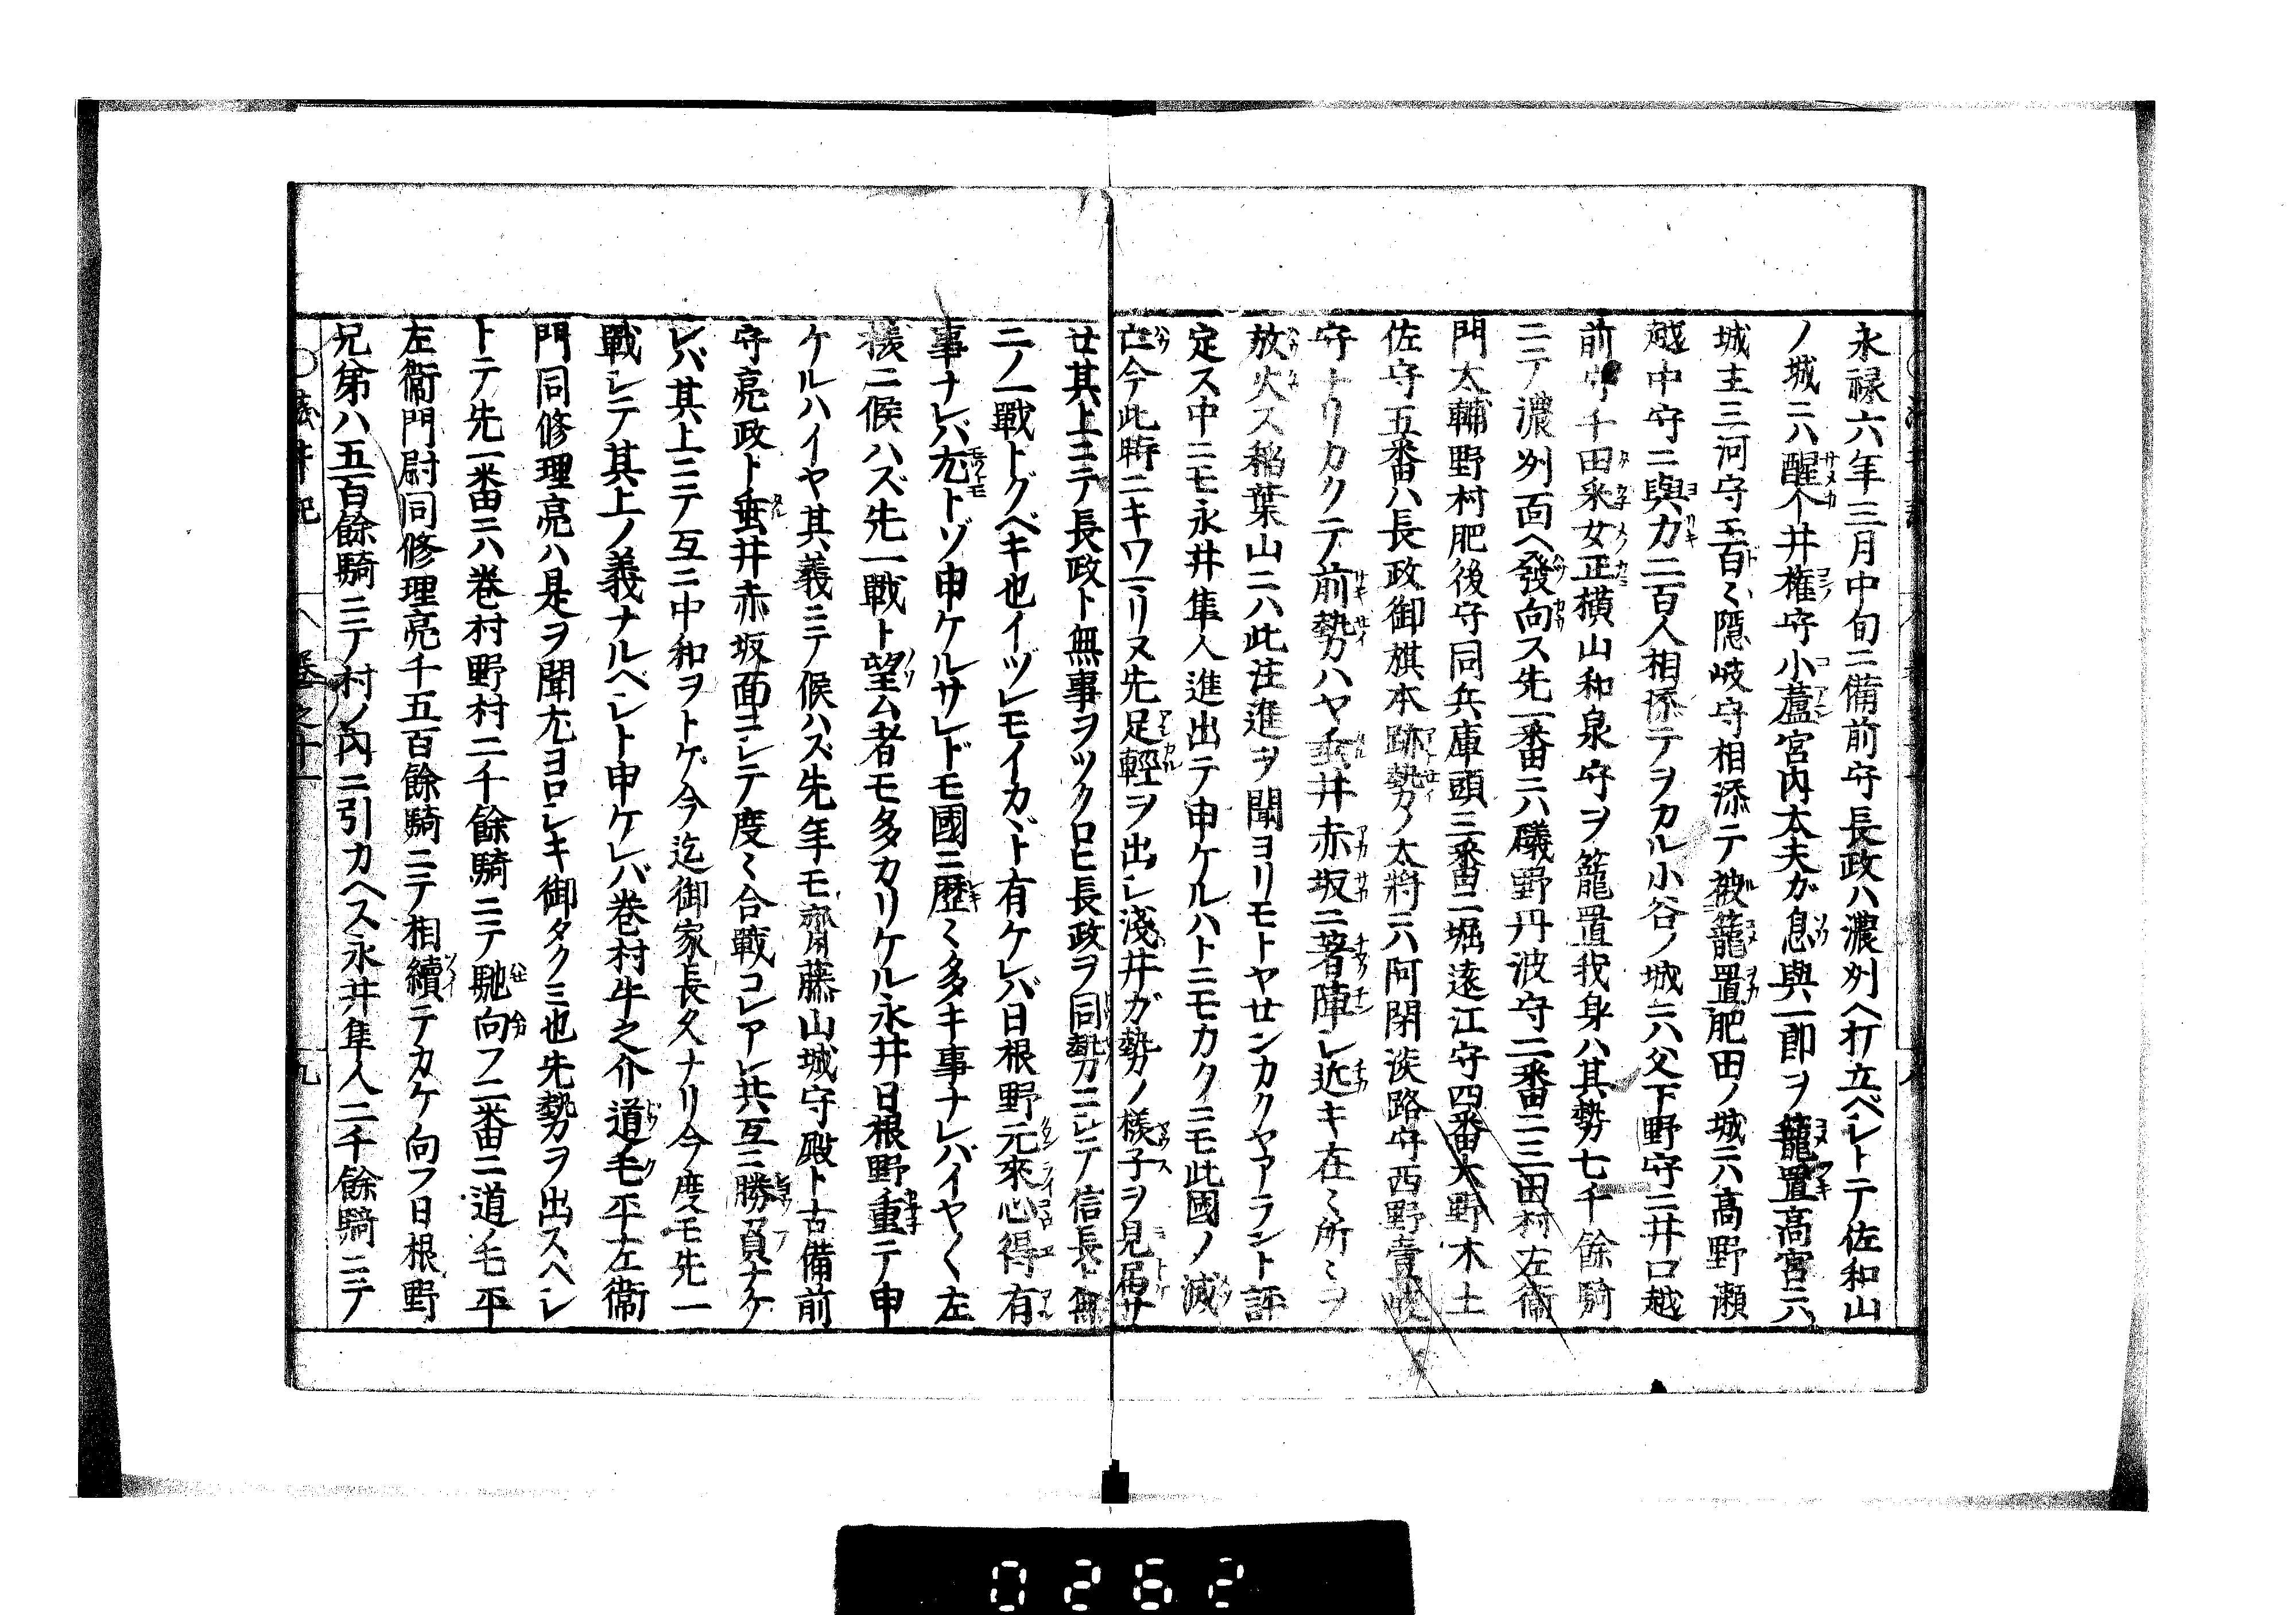 永禄六年三月中旬ニ備前守長政ハ濃州ヘ打立ベシトテ佐和山
ノ城ニハ醒个井権守小蘆宮内太夫ガ息與一郎ヲ籠置高宮ニハ
城主三河守五百ミ隠岐守相添テ被籠置肥田ノ城ニハ高野瀬
越中守ニ與力二百人相添テヲカル小谷ノ城ニハ父下野守ニ井口越
前守千田采女正横山和泉守ヲ籠置我身ハ其勢七千餘騎
ニテ濃州面ヘ發向ス先一番ニハ礒野丹波守二番ニ三田村左衛
門大輔野村肥後守同兵庫頭三番ニ堀遠江守四番大野木土
佐守五番ハ長政御旗本跡勢ノ大将ニハ阿閉淡路守西野壹岐
守ナリカクテ前勢ハヤ垂井赤坂ニ著陣シ近キ在〻所〻ヲ
放火ス稲葉山ニハ此注進ヲ聞ヨリモトヤセンカクヤアラント評
定ス中ニモ永井隼人進出テ申ケルハトニモカクニモ此國ノ滅
亡今此時ニキワマリヌ先足輕ヲ出シ淺井ガ勢ノ様子ヲ見届サ
せ其上ニテ長政ト無事ヲツクロヒ長政ヲ同勢ニシテ信長ト無
二ノ一戰トグベキ也イヅレモイカヾト有ケレバ日根野元來心得有
事ナレバ尤トゾ申ケルサレドモ國ニ歴〻多キ事ナレバイヤ〳〵左
様ニ候ハズ先一戰ト望ム者モ多カリケル永井日根野重テ申
ケルハイヤ其義ニテ候ハズ先年モ齋藤山城守殿ト古備前
守亮政ト垂井赤坂面ニシテ度〻合戰コレアレ共互ニ勝負ナケ
レバ其上ニテ互ニ中和ヲトゲ今迄御家長久ナリ今度モ先一
戰シテ其上ノ義ナルベシト申ケレバ巻村牛之介道ノ毛平左衛
門同修理亮ハ是ヲ聞尤ヨロシキ御タクミ也先勢ヲ出スヘシ
トテ先一番ニハ巻村野村二千餘騎ニテ馳向フ二番ニ道ノ毛平
左衛門尉同修理亮千五百餘騎ニテ相續テカケ向フ日根野
兄弟ハ五百餘騎ニテ村ノ内ニ引カヘス永井隼人二千餘騎ニテ
巻之十一
九
0262